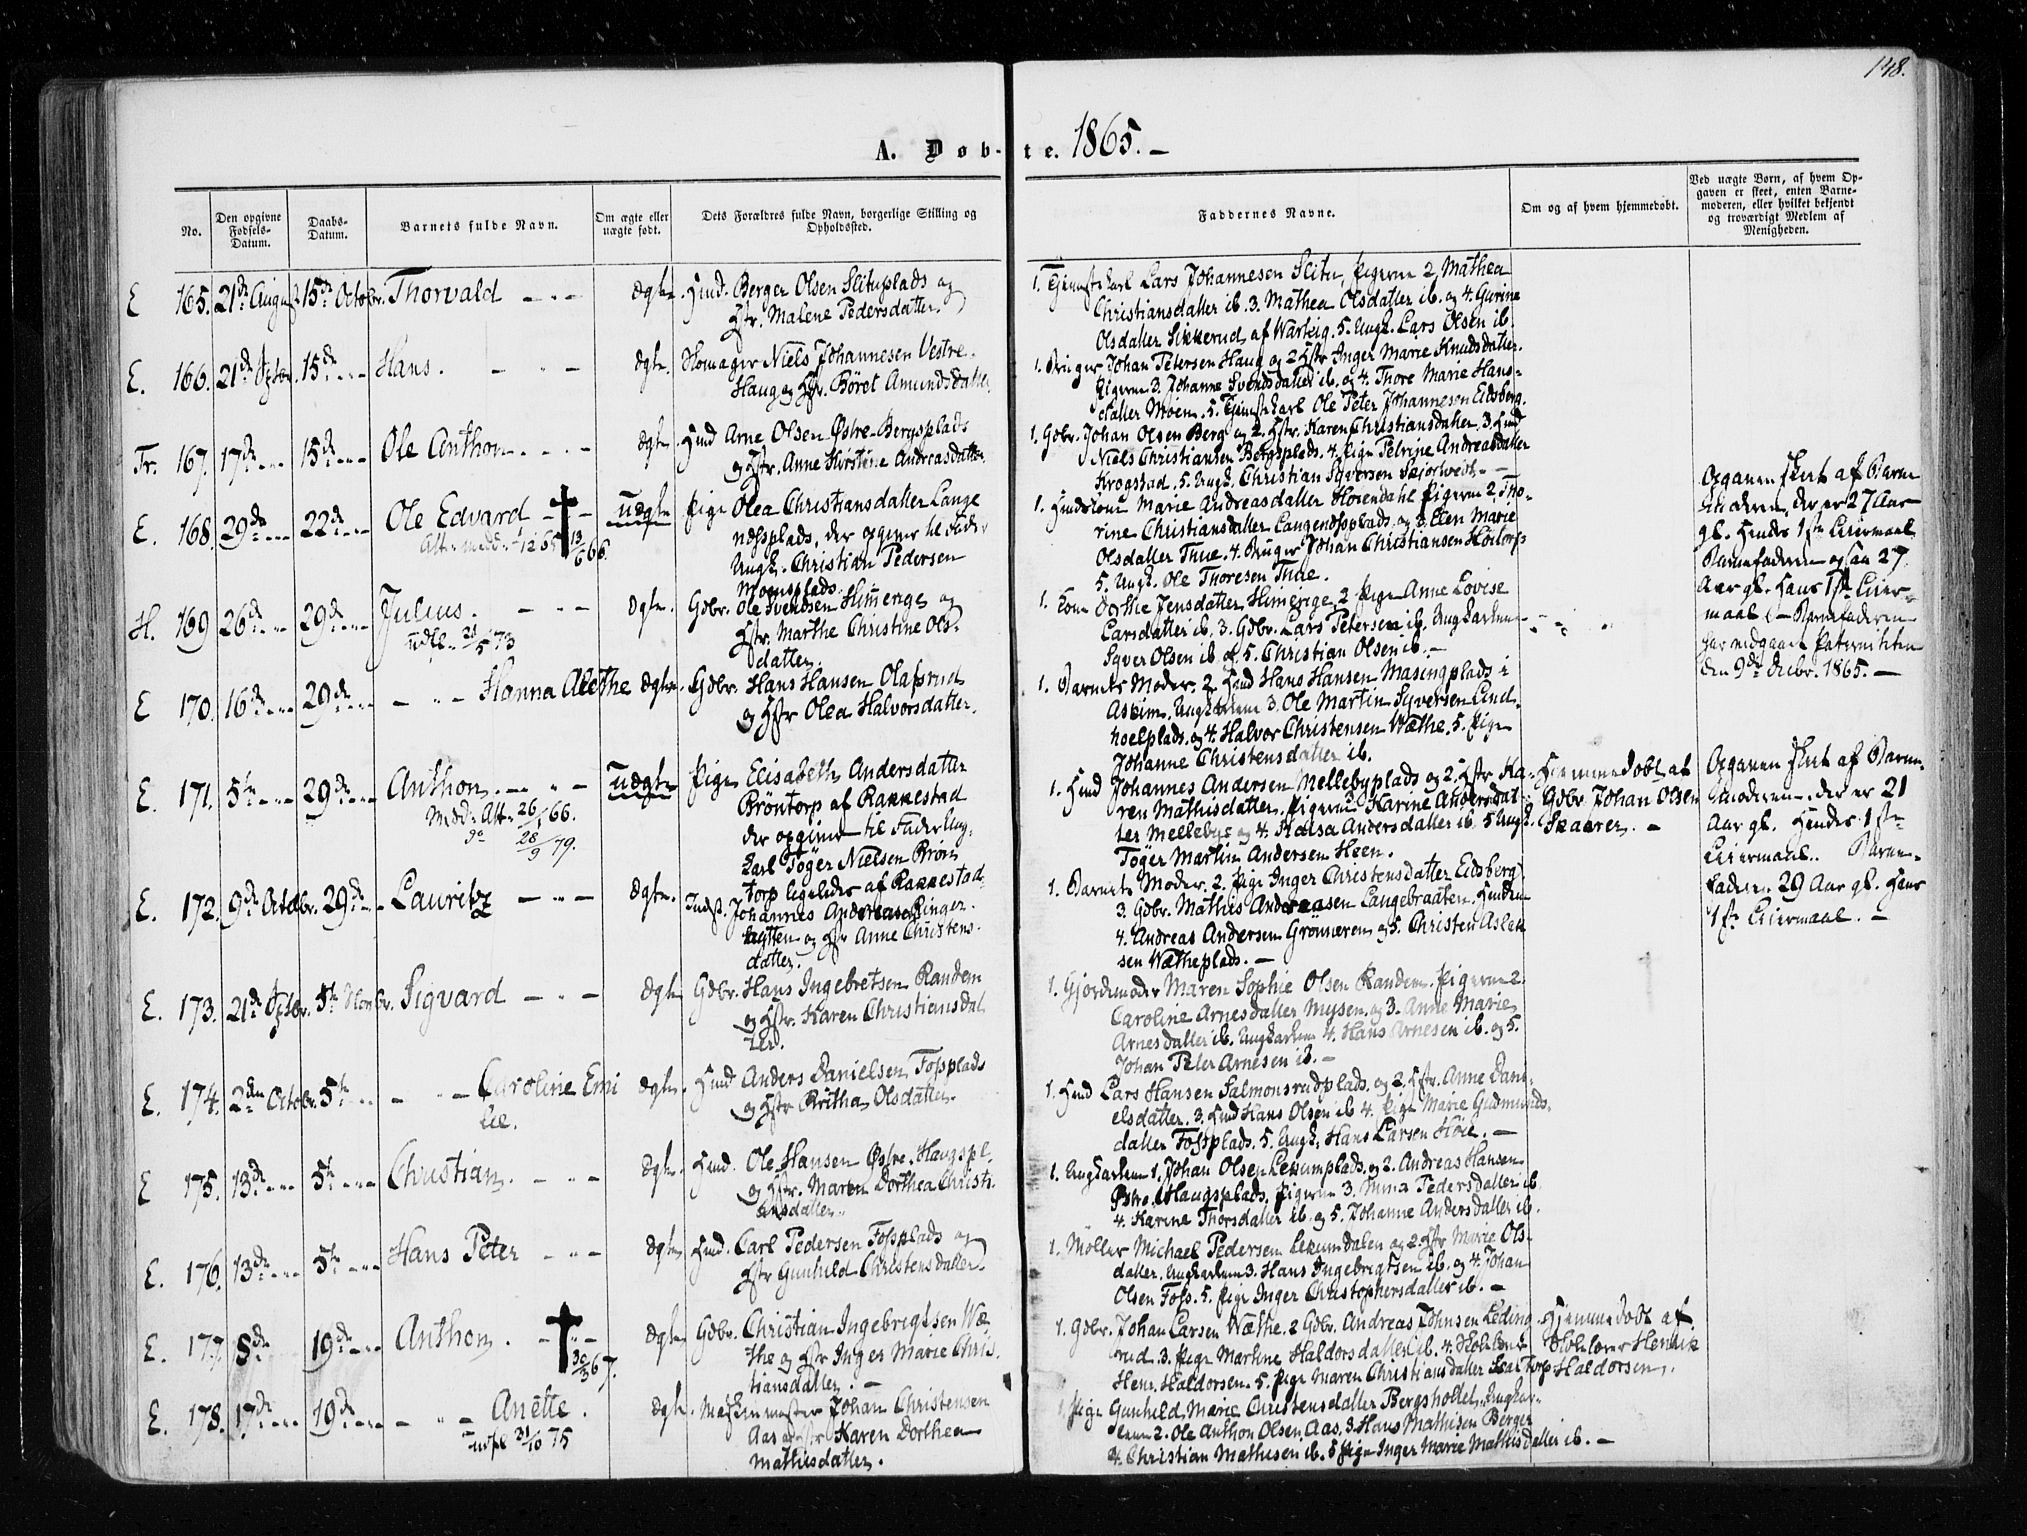 148.
A. Døb-te. 1865. —
No.
Den opgivne Fødsels-Datum.
Daabs-Datum.
Barnets fulde Navn.
Om ægte eller uægte født.
Dets Forældres fulde Navn, borgerlige Stilling og Opholdssted.
Faddernes Navne.
Om og af hvem hjemmedøbt.
Ved uægte Børn, af hvem Opgaven er skeet, enten Barnemoderen, eller hvilket bekjendt og troværdigt Medlem af Menigheden.
E 165. 21de August 15de Octobr. Thorvald — „ — ægte. Huusmd. Berger Olsen Slituplads og
Hstr. Malene Pedersdatter.
1. Tjenestekarl Lars Johannesen Slitu, Pigerne 2 Mathea
Christiansdatter ib. 3. Mathea Olsdatter ib. og 4. Gurine
Olsdatter Sikkerud af Warteig. 5. Ungk. Lars Olsen ib.
E. 166. 21de Septbr. 15de „ Hans. — „ — ægte. Skomager Niels Johannesen Vestre-
Haug og Hstr. Böret Amundsdatter
1. Bruger Johan Petersen Haug og 2 Hstr Inger Marie Knudsdatter.
Pigerne 3. Johanne Svendsdatter ib. og 4. Thore Marie Hans-
datter Moen. 5. Tjenestekarl Ole Peter Johannesen Eidsberg.
Tr. 167. 17de „ 15de „ Ole Anthon. — „ — ægte. Huusmd Arne Olsen Østre-Bergsplads
og Hstr. Anne Kirstine Andreasdatter
1. Gdbr. Johan Olsen Berg og 2. Hstr. Karen Christiansdatter. 3. Huusmd
Niels Christiansen Bergsplads. 4. Pige Petrine Andreasdatter
Krogstad. 5. Ungk. Christian Syversen Skjortvedt. —
E. 168. 29de „ 22de „ Ole Edvard — † — uægte Pige Olea Christiansdatter Lange
Att. medd. 12 65 13/6 66.
næssplads, der opgiver til Fader
Ungk. Christian Pedersen
Moensplads.
1. Huusmdskone Marie Andreasdatter Hosendahl Pigerne 2. Tho-
rine Christiansdatter Langenæssplads og 3. Elen Marie
Olsdatter Thue. 4. Bruger Johan Christiansen Höitorp
5. Ungk. Ole Thoresen Thue.
Opgaven skeet af Barne
moderen, der er 27 Aar
gl. Hendes 1ste Leiermaal
Barnefaderen ogsaa 27
Aar gl. Hans 1ste Leier-
maal. — Barnefaderen
har vedgaaet Paterniteten
den 9de Decbr. 1865. —
H. 169 26de „ 29de „ Julius. — „ — ægte. Gdbr. Ole Svendsen Himerige og
udfl. 21/5 73
Hstr. Marthe Christine Ols-
datter.
1. Kone Dorthe Jensdatter Himerige. 2 Pige Anne Lovise
Larsdatter ib. 3. Gdbr. Lars Petersen ib. Ungkarlene
Syver Olsen ib. og 5. Christian Olsen ib. —
E 170. 16de „ 29de „ — „ — Hanna Alethe ægte. Gdbr. Hans Hansen Olafsrud
og Hstr Olea Halvorsdatter.
1. Barnets Moder. 2. Huusmd Hans Hansen Masingplads i
Askim. Ungkarlene 3. Ole Martin Syversen Lind-
hoelplads. og 4. Halvor Christensen Wæthe. 5. Pige
Johanne Christensdatter ib.
E. 171. 5te „ 29de „ Anthon. — „ — uægte Pige Elisabeth Andersdatter
Medd. Att. 26/1 66.
do 28/9 79.
Bröntorp af Rakkestad
der opgiver til Fader Ung-
karl Töger Nielsen Brön
torp ligeledes af Rakkestad
1. Huusmd Johannes Andersen Mellebyplads og 2. Hstr. Ka-
ren Mathisdatter. Pigerne Karine Andersdat-
ter Melleby og 4. Andersdatter ib. 5 Ungk.
Töger Martin Andersen Heen.
Hjemmedøbt af
Gdbr. Johan Olsen
Skaarer. —
Opgaven skeet af Barne-
moderen, der er 21
Aar gl. Hendes 1ste
Leiermaal. Barne-
faderen 29 Aar gl. Hans
1ste Leiermaal. —
E. 172. 9de Octobr. 29de „ Lauritz — „ — ægte. Indst. Johannes Andreasen Ringer-
hytten og Hstr Anne Christens-
datter.
1. Barnets Moder. 2. Pige Inger Christensdatter Eidsberg
3. Gdbr. Mathis Andreasen Langebraaten. Huusmdene
4. Andreas Andersen Grönneren og 5. Christen Aslak
sen Wætheplads. —
E. 173. 21de Septbr. 5te Novbr. Sigvard — „ — ægte Gdbr. Hans Ingebretsen Randem
og Hstr. Karen Christiansdat
ter.
1. Gjordemoder Maren Sophie Olsen Randem. Pigerne 2.
Caroline Arnesdatter Mysen. og 3. Anne Marie
Arnesdatter ib. Ungkarlene 4. Hans Arnesen ib. og 5.
Johan Peter Arnesen ib. —
E. 174. 2den Octobr. 5te „ — „ — Caroline Emi ægte. Huusmd Anders Danielsen Fossplads
lie.
og Hstr Kritha Olsdatter.
1. Huusmd Lars Hansen Salmonsrudplads. og 2. Hstr. Anne Dani-
elsdatter. 3. Huusmd Hans Olsen ib 4. Pige Marie Gudmunds-
datter Fossplads. 5. Ungk. Hans Larsen Höie. —
E 175. 13de „ 5te „ Christian. — „ — ægte. Huusmd. Ole Hansen Østre-Haugspl.
og Hstr. Maren Dorthea Christi
ansdatter.
1. Ungkarlene 1. Johan Olsen Lekumplads. og 2. Andreas Hansen
Østre Haugsplads. Pigerne 3. Pedersdatter ib.
4. Karine Thorsdatter ib. og 5. Johanne Andersdatter ib.
E. 176. 13de „ 5te „ Hans Peter — „ — ægte Huusmd. Carl Pedersen Fossplads og
Hstr Gunhild Christensdatter.
1. Möller Michael Pedersen Lekumdalen og 2. Hstr Marie Ols-
datter. Ungkarlene 3. Hans Ingebrigtsen ib. og 4. Johan
Olsen Foss. 5. Pige Inger Christophersdatter ib. —
E. 177. 8de 19de „ Anthon. — † — ægte Gdbr. Christian Ingebrigtsen Wæ
30/3 67.
the og Hstr Inger Marie Chris-
tiansdatter. —
1. Gdbr. Johan Larsen Wæthe. 2 Gdbr. Andreas Johnsen Leding
rud. 3. Pige Martine Haldorsdatter ib. 4. Skolelærer
Henr. Haldorsen. 5. Pige Maren Christiansdatter
Hjemmedøbt af
Skolelærer Henrik
Haldorsen.
E. 178. 17de „ 19de „ — „ — Anette. ægte. Maskinmester Johan Christensen
udfl 31/10 75
Aas og Hstr Karen Dorthea
Mathisdatter.
1. Pige Gunhild Marie Christensdatter Bergsholtet. Ungkar-
lene 2. Ole Anthon Olsen Aas. 3 Hans Mathisen Berger
4. Christian Mathisen ib. 5 Pige Inger Marie Mathisdatter ib. —